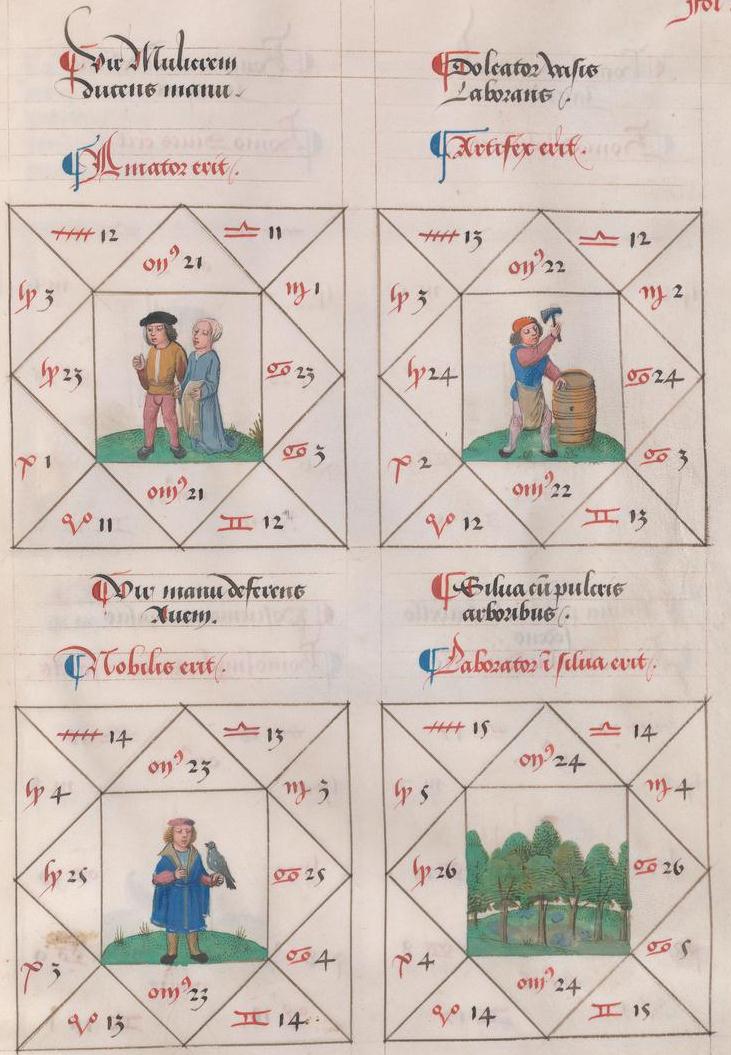 Vir Mulierem
ducens manu.
Amator erit.
12
11
21
3
1
23
23
1
3
21
11
12
Doleator vasis
Laborans.
Artifex erit.
13
12
22
3
2
24
24
2
3
22
12
13
Vir manu deferens
Auem.
Nobilis erit.
14
13
23
4
3
25
25
3
4
23
13
14
Silua cū pulcris
arboribus.
Laborator ī silua erit.
15
14
24
5
4
26
26
4
5
24
14
15